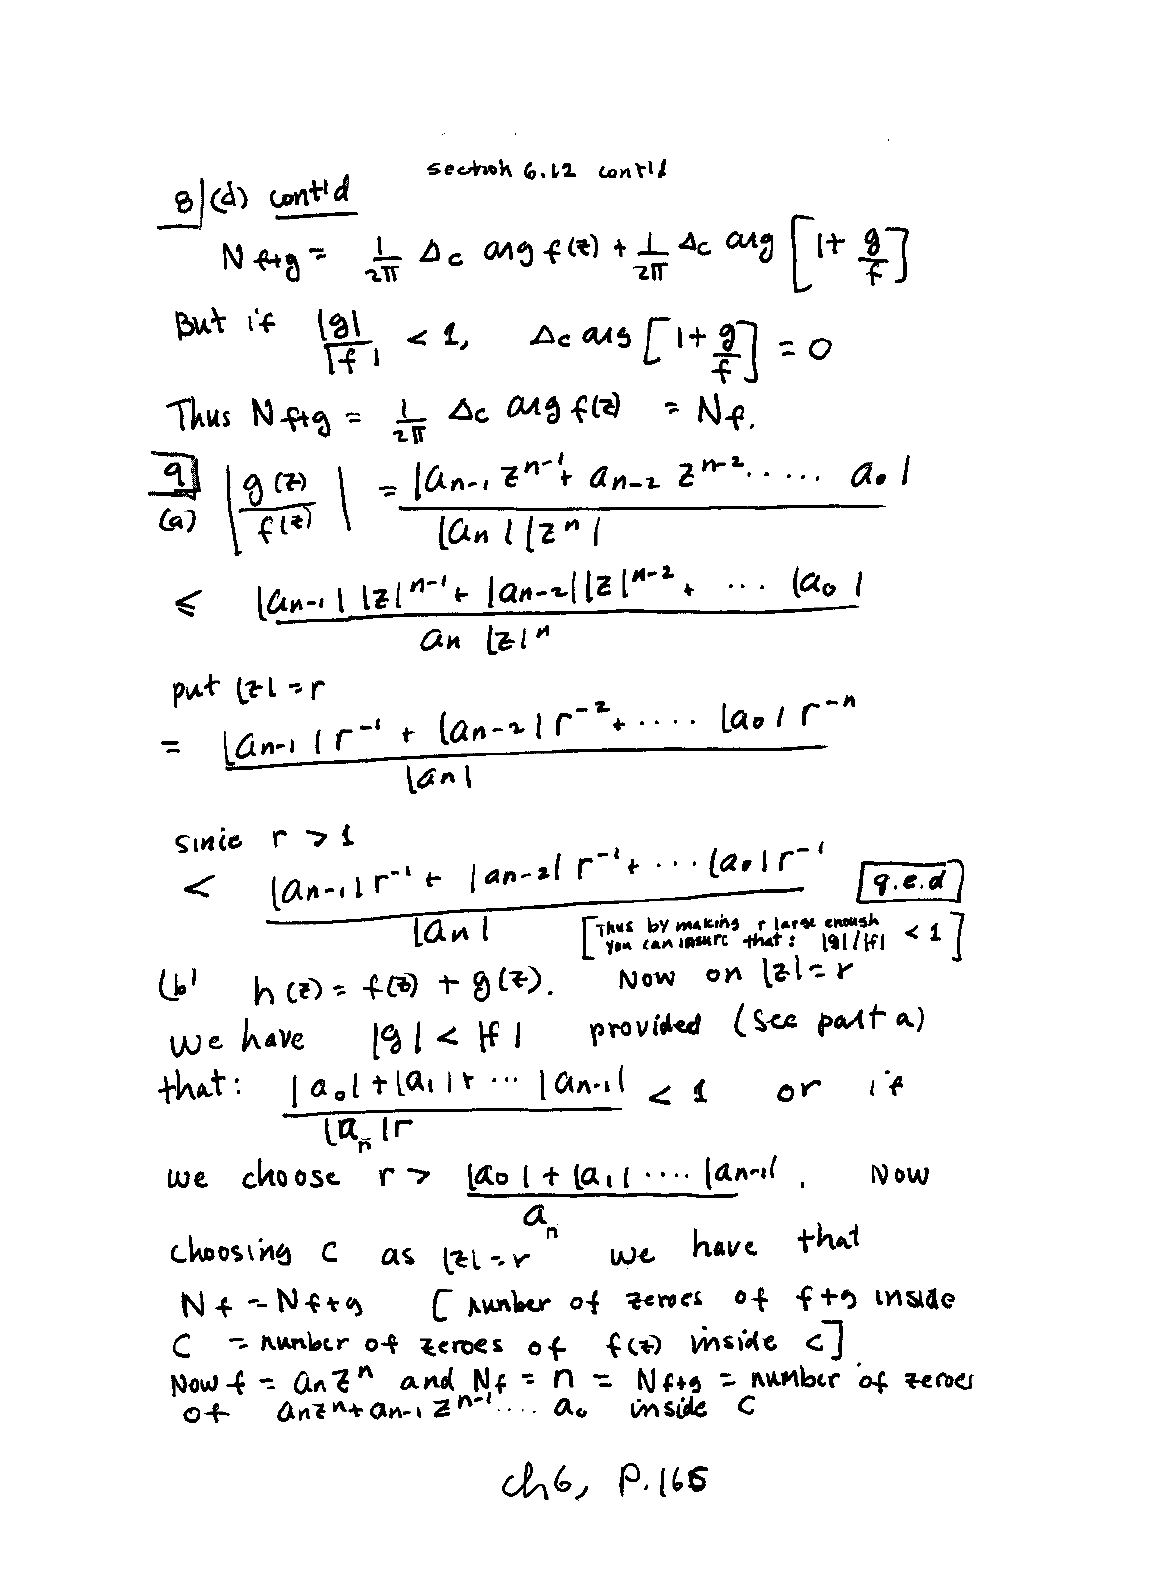 section 6.12 cont'd
8 (d) cont'd
N f+g = 1/2π Δc arg f(z) + 1/2π Δc arg [1+ g/f]
But if |g|/|f| < 1, Δc arg [1+ g/f] = 0
Thus N f+g = 1/2π Δc arg f(z) = Nf.
9 (a) |g(z)/f(z)| = |an-1 z^n-1 + an-2 z^n-2 ..... a0| / |an| |z^n|
≤ |an-1| |z|^n-1 + |an-2||z|^n-2 + ... |a0| / an |z|^n
put |z| = r
= |an-1| r^-1 + |an-2| r^-2 + .... |a0| r^-n / |an|
since r > 1
< |an-1| r^-1 + |an-2| r^-1 + ... |a0| r^-1 / |an| q.e.d
[Thus by making r large enough
you can insure that: |g|/|f| < 1]
(b) h(z) = f(z) + g(z). Now on |z| = r
we have |g| < |f| provided (see part a)
that: |a0| + |a1| + ... |an-1| / |an| r < 1 or if
we choose r > |a0| + |a1| .... |an-1| / an . Now
choosing C as |z| = r we have that
Nf = Nf+g [number of zeroes of f+g inside
C = number of zeroes of f(z) inside C].
Now f = an z^n and Nf = n = Nf+g = number of zeroes
of an z^n + an-1 z^n-1 .... a0 inside C
ch6, P.165